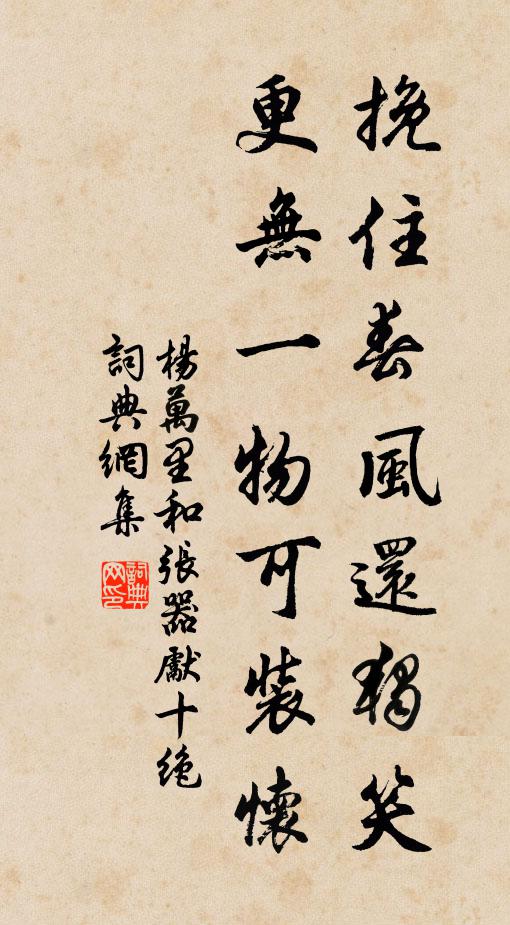 挽住春風還獨笑
更無一物可裝懷
楊萬里和張器獻十絶
詞典網集
詞典網印